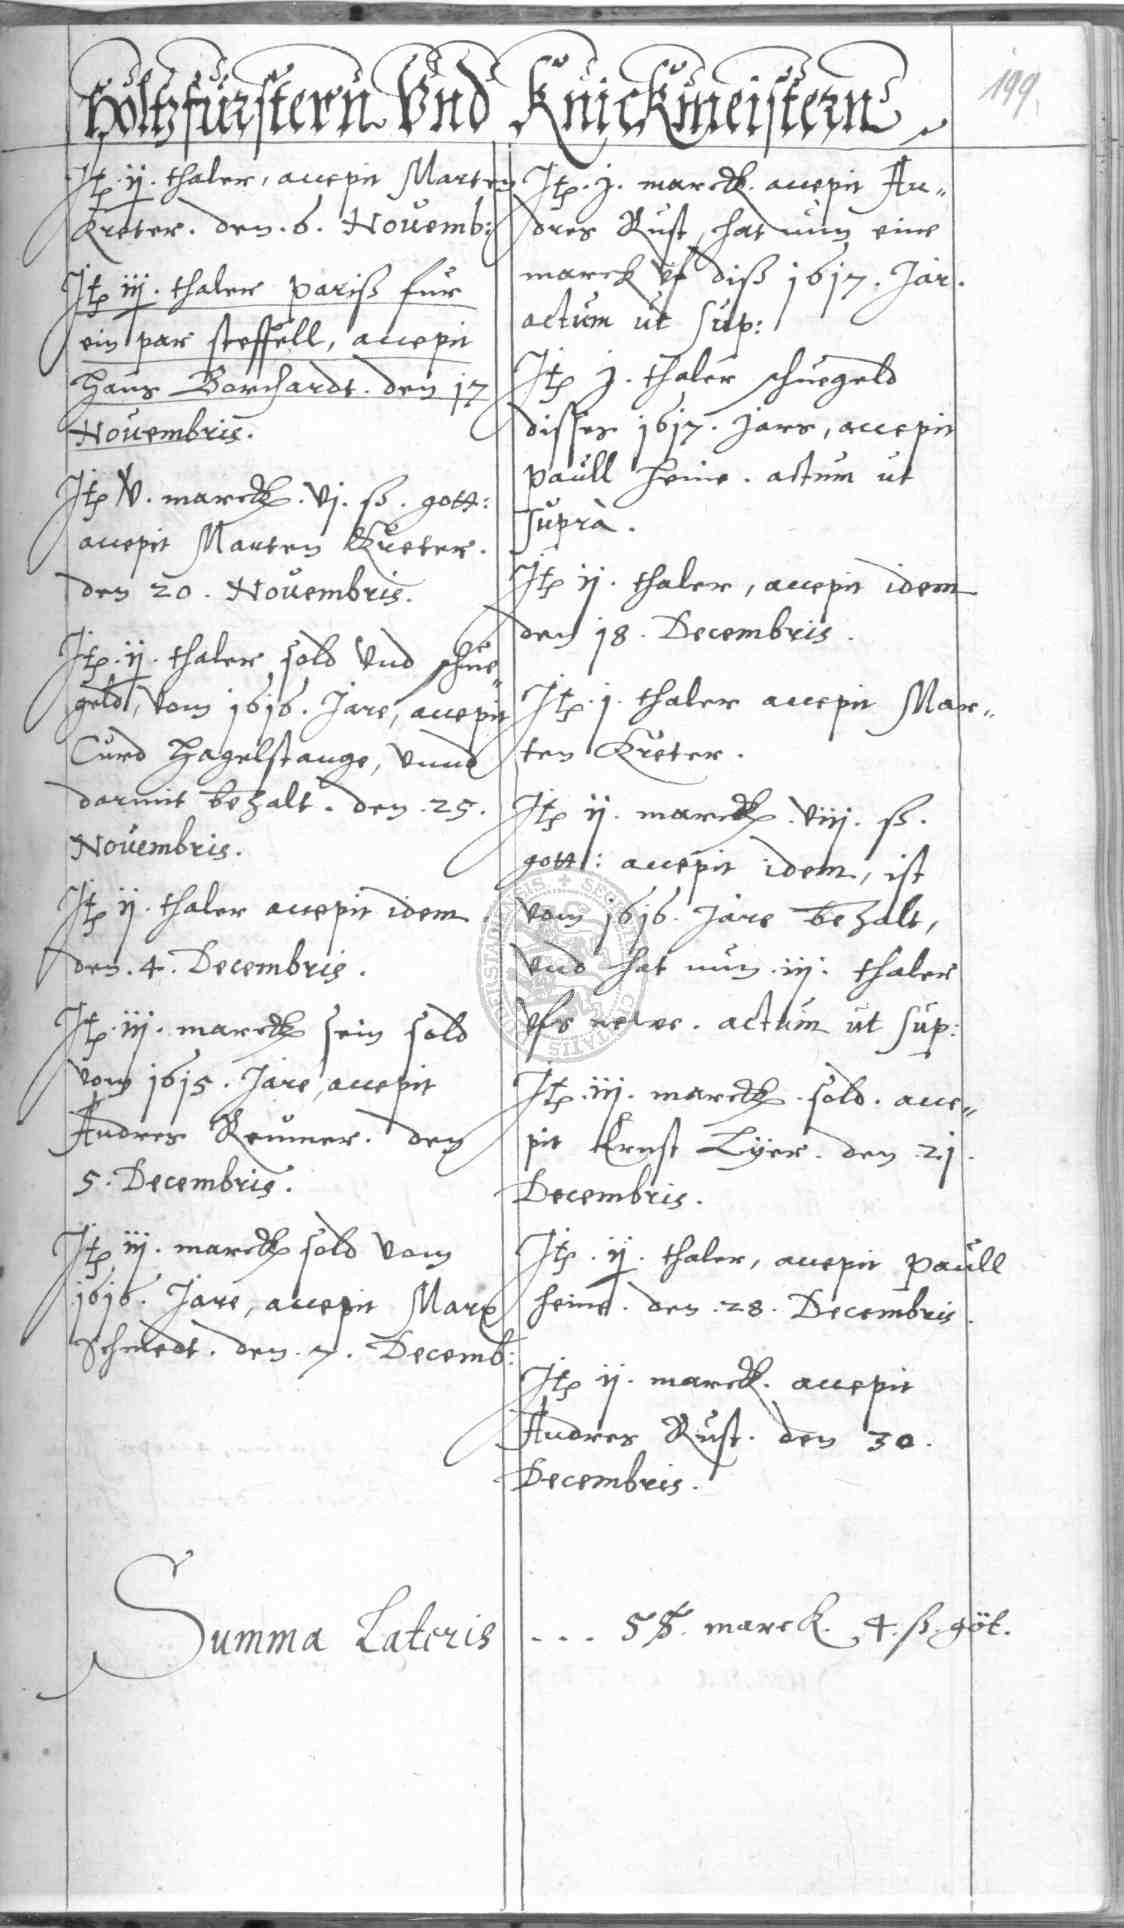 199.
Holtzfürstern Vnd Knickmeistern
Itp. ij. thaler, accepit Marten
Kreter. den. 6. Novemb:
Itp iij. thaler pariß für
ein par steffell, accepit
Hans Borchardt. den 17
Novembris.
Itp V. marck. vj. ß. gott:
accepit Marten Kreter.
den 20. Novembris.
Itp. ij. thaler sold Vnd schue„
geldt, Vom 1616. Jare, accepit
Curd Hagelstange, Vnnd
darmit bezalt. den. 25.
Novembris.
Itp ij. thaler accepit idem
den. 4. Decembris.
Itp. iij. marck sein sold
vom 1615. Jare, accepit
Andres Reumer. den
5. Decembris.
Itp iij. marck sold vom
1616. Jare, accepit Marx
Schmedt. den. 7. Decemb:
Itp. j. marck. accepit An„
dres Rust, hat nun eine
marck vf diß 1617. Jar.
actum ut sup:
Itp j. thaler schuegeld
disses 1617. Jars, accepit
Paull Heine. actum ut
suprà.
Itp ij. thaler, accepit idem
den 18. Decembris.
Itp. j. thaler accepit Mar„
ten Kreter.
Itp ij. marck. viij. ß.
gott: accepit idem, ist
vom 1616. Jare bezalt,
Vnd hat nun. iij. thaler
vfs newe. actum ut sup:
Itp. iij. marck. sold. acce„
pit Ernst Lyer. den. 21.
Decembris.
Itp. ij. thaler, accepit Paull
Heine. den. 28. Decembris.
Itp ij. marck. accepit
Andres Rust. den 30.
Decembris.
Summa Lateris . . . marck. 4. ß. göt.